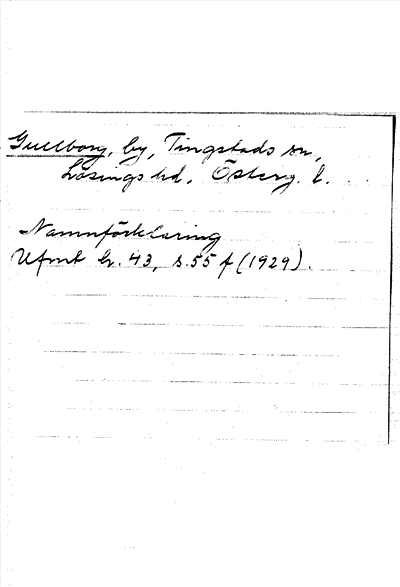 Gullborg, by, Tingstads sn,
Lösings hd, Österg. l.
Namnförklaring
Ufmt h. 43, s. 55 f (1929).